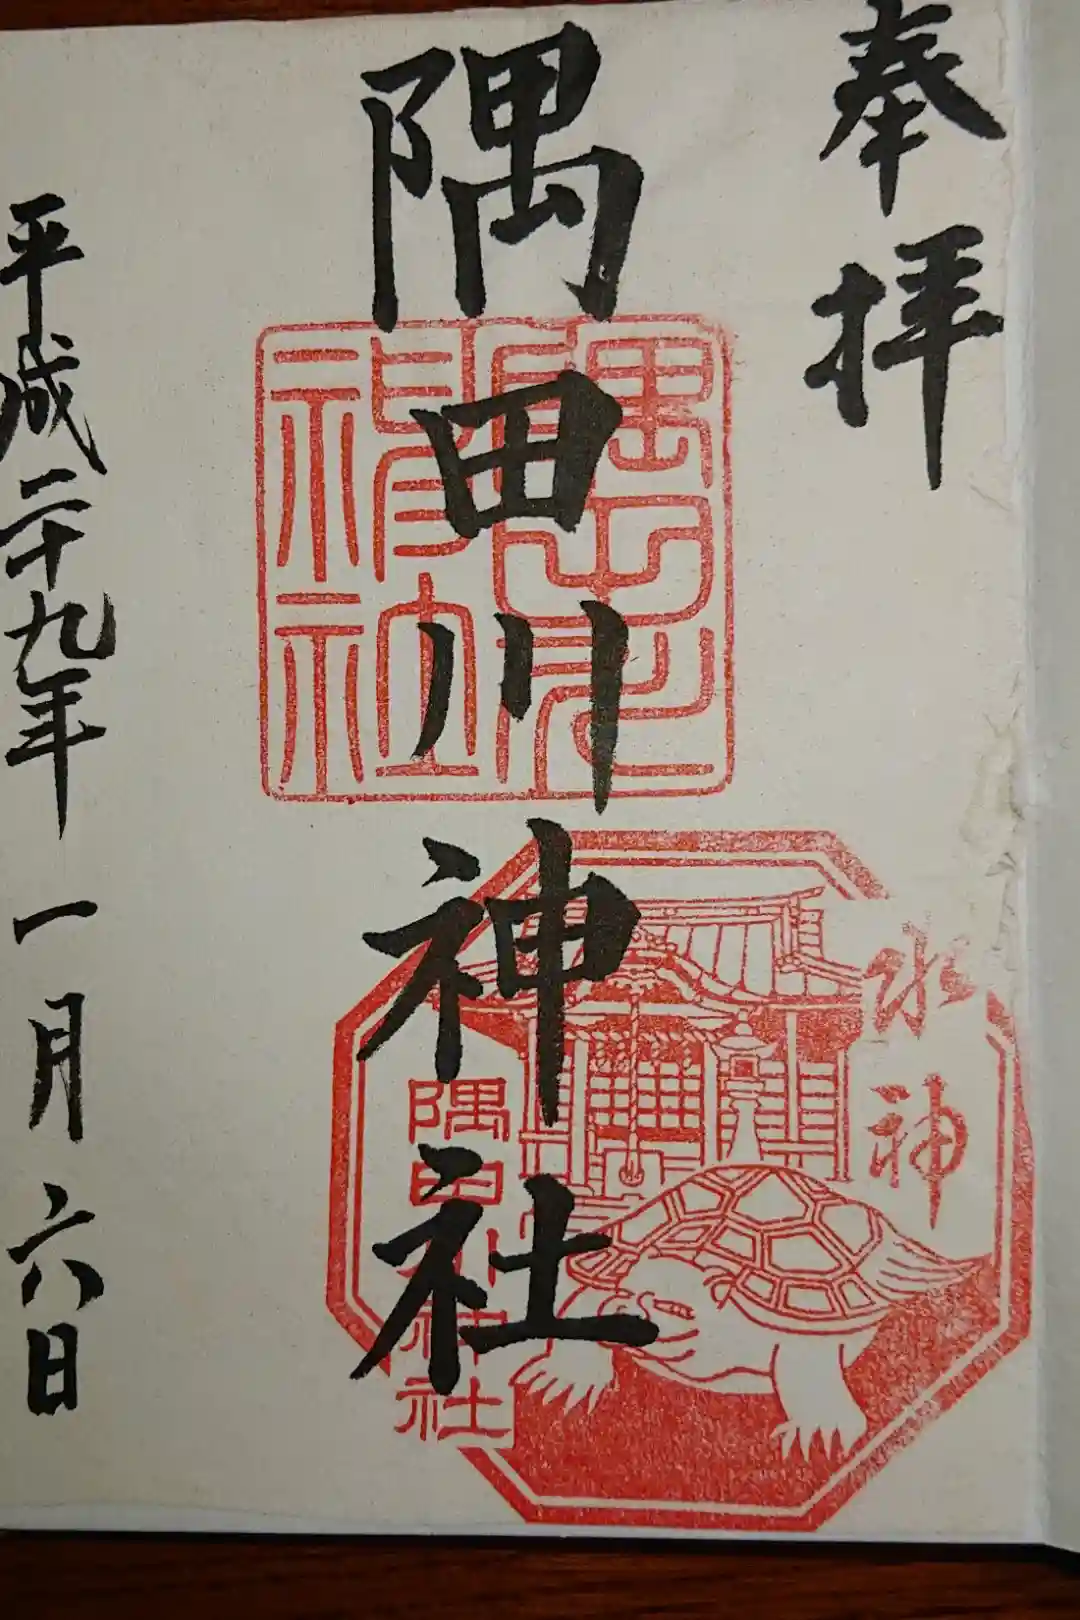 奉拝
隅田川神社
隅田川神社
水神
隅田川神社
平成二十九年一月六日